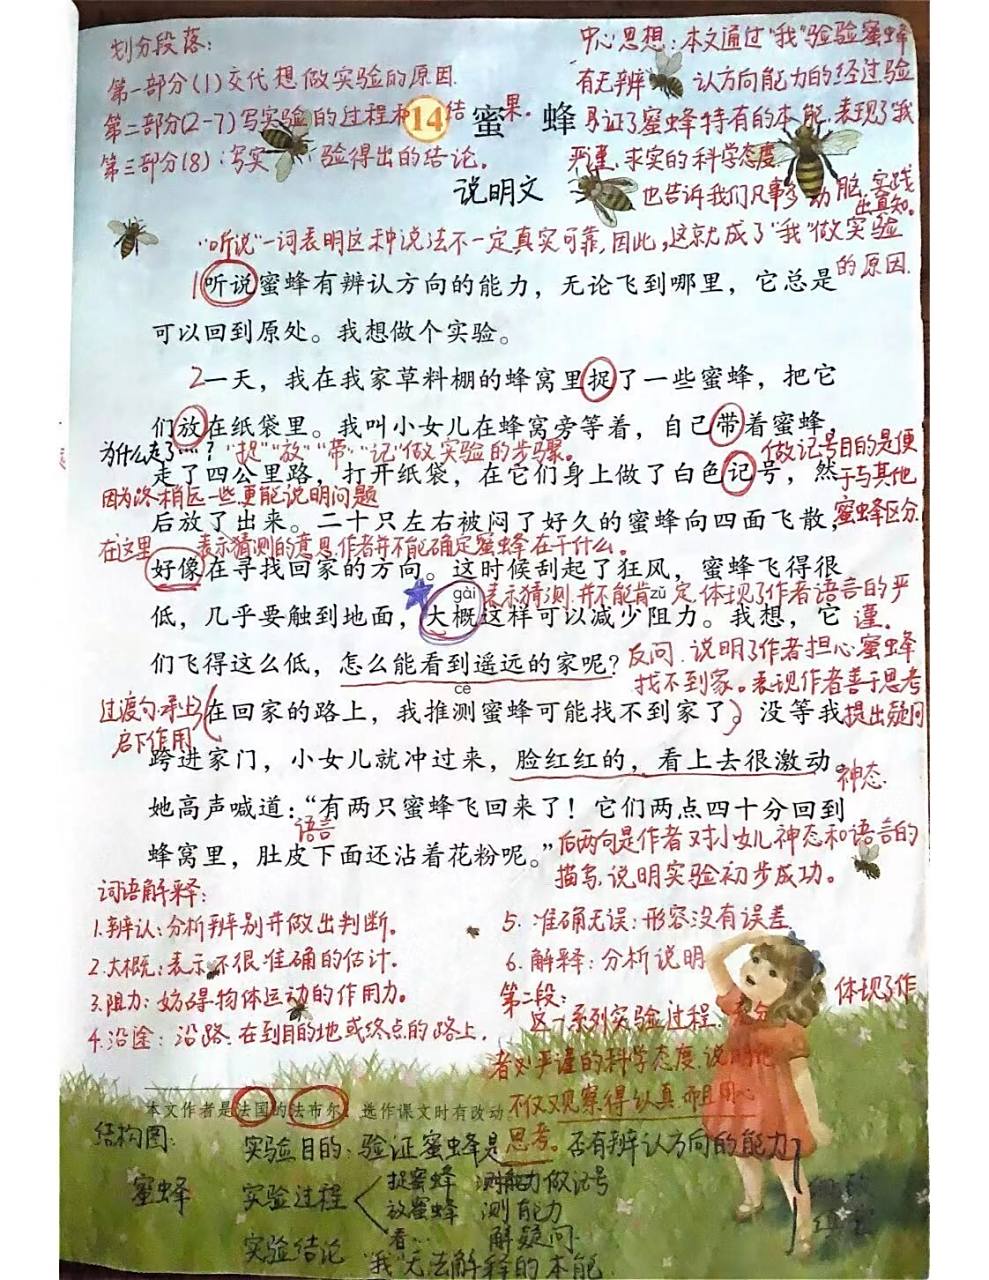 划分段落：
第一部分(1)交代想做实验的原因.
第二部分(2-7)写实验的过程和结果.
第三部分(8)：写实验得出的结论。
中心思想：本文通过“我”验验蜜蜂
有无辨认方向能力的经过,验
证了蜜蜂特有的本能,表现了我
严谨、求实的科学态度,
也告诉我们凡事多动脑,实践
出真知。
14 蜜蜂
说明文
“听说”一词表明这种说法不一定真实可靠,因此,这就成了“我”做实验
的原因.
1听说蜜蜂有辨认方向的能力，无论飞到哪里，它总是
可以回到原处。我想做个实验。
2一天，我在我家草料棚的蜂窝里捉了一些蜜蜂，把它
们放在纸袋里。我叫小女儿在蜂窝旁等着，自己带着蜜蜂，
为什么走了……？“捉”“放”“带”“记”做实验的步骤。
做记号目的是便
走了四公里路，打开纸袋，在它们身上做了白色记号，然
于与其他
因为路稍远一些,更能说明问题
蜜蜂区分.
后放了出来。二十只左右被闷了好久的蜜蜂向四面飞散，
在这里 表示猜测的意思,作者并不能确定蜜蜂在干什么。
好像在寻找回家的方向。这时候刮起了狂风，蜜蜂飞得很
gài
zǔ
表示猜测,并不能肯定,体现了作者语言的严
谨.
低，几乎要触到地面，大概这样可以减少阻力。我想，它
们飞得这么低，怎么能看到遥远的家呢？
反问.说明了作者担心蜜蜂
找不到家。表现作者善于思考
提出疑问
cè
过渡句,承上
启下作用
在回家的路上，我推测蜜蜂可能找不到家了。没等我
跨进家门，小女儿就冲过来，脸红红的，看上去很激动。
神态.
她高声喊道：“有两只蜜蜂飞回来了！它们两点四十分回到
语言
蜂窝里，肚皮下面还沾着花粉呢。”
后两句是作者对小女儿神态和语言的
描写,说明实验初步成功。
词语解释：
1.辨认：分析辨别并做出判断。
2.大概：表示不很准确的估计.
3.阻力：妨碍物体运动的作用力。
4.沿途：沿路.在到目的地或终点的路上.
5.准确无误：形容没有误差
6.解释：分析说明
第二段：
这一系列实验过程,充分
体现了作
者严谨的科学态度.说明他
不仅观察得认真而且用心
思考。
本文作者是法国的法布尔，选作课文时有改动
结构图：
蜜蜂
实验目的：验证蜜蜂是否有辨认方向的能力
实验过程
捉蜜蜂 测能力做记号
放蜜蜂 测能力
看… 解疑问
实验结论 “我”无法解释的本能